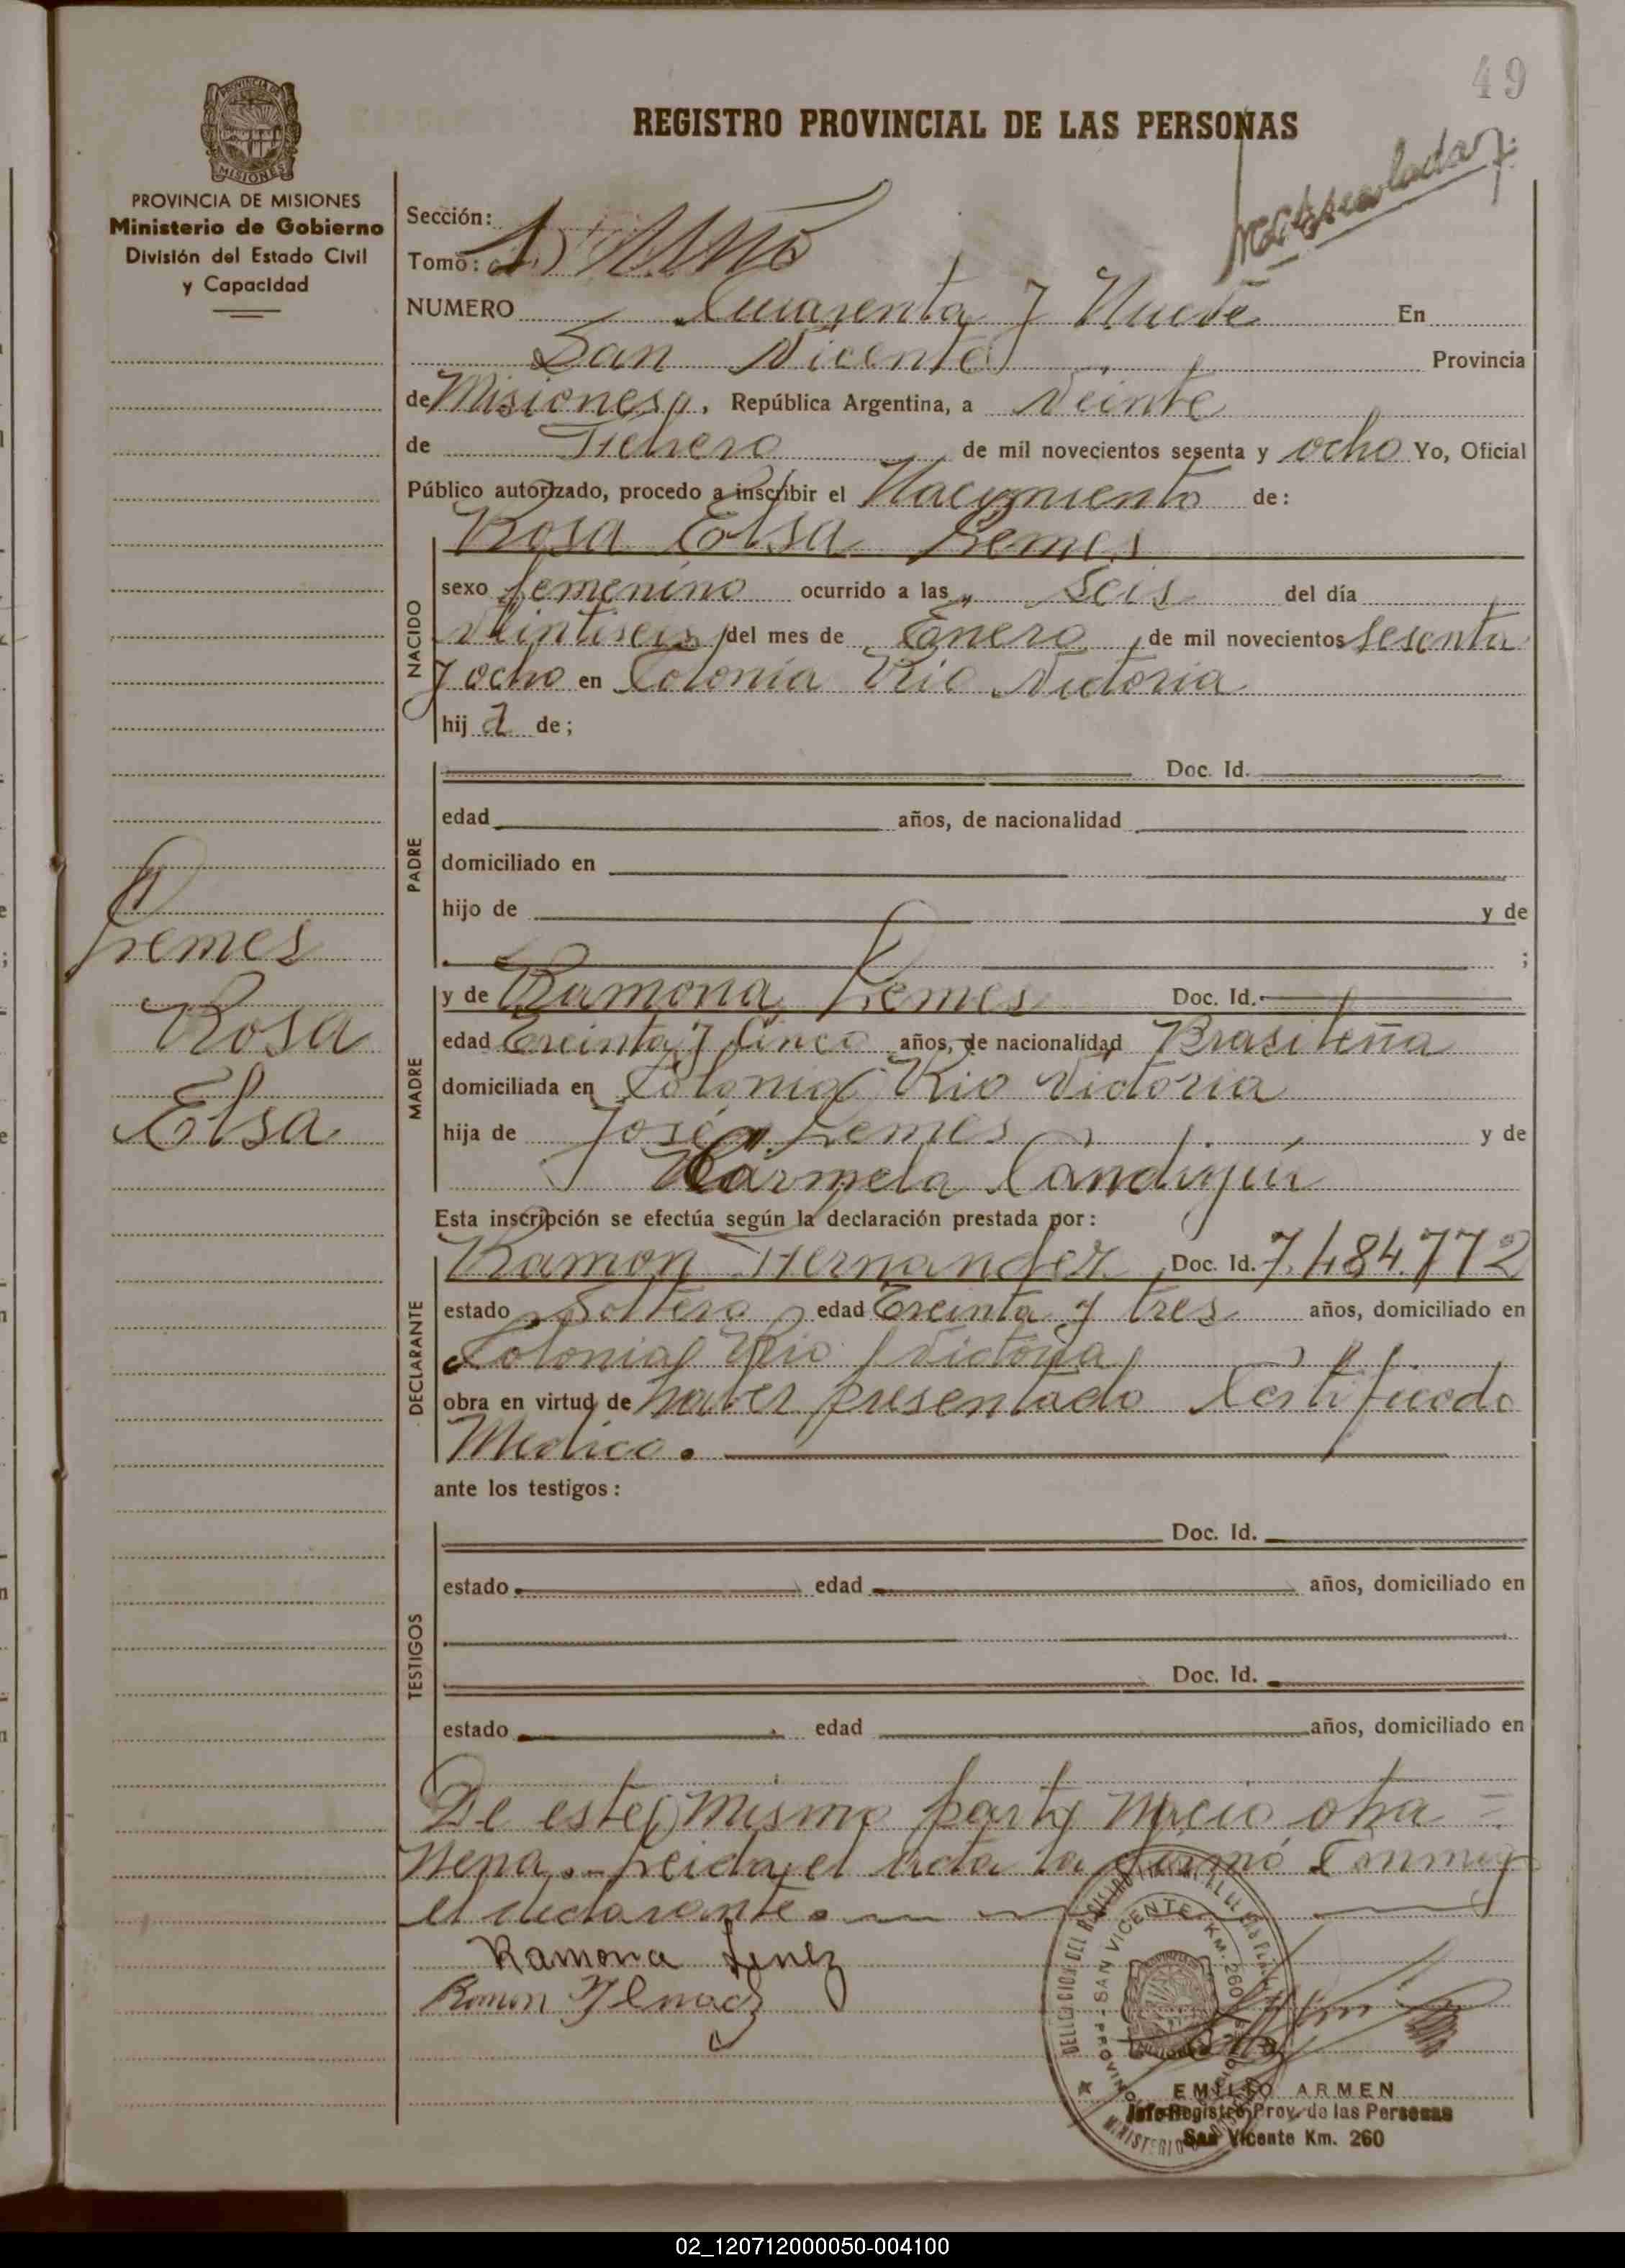 49
REGISTRO PROVINCIAL DE LAS PERSONAS
PROVINCIA DE MISIONES
Ministerio de Gobierno
División del Estado Civil
y Capacidad
Sección:
Tomo:
NUMERO Cuarenta y Nueve En
San Vicente Provincia
de Misiones, República Argentina, a Veinte
de Febrero de mil novecientos sesenta y ocho Yo, Oficial
Público autorizado, procedo a inscribir el Nacymiento de:
Rosa Elsa Lemes
NACIDO
sexo femenino ocurrido a las Seis del día
Veintiseis del mes de Enero de mil novecientos Sesenta
y ocho en Colonia Rio Victoria
hija de;
PADRE
Doc. Id.
edad años, de nacionalidad
domiciliado en
hijo de y de
;
Lemes
Rosa
Elsa
MADRE
y de Ramona Lemes Doc. Id.
edad Treinta y Cinco años, de nacionalidad Brasileña
domiciliada en Colonia Rio Victoria
hija de José Lemes y de
Carmela
Esta inscripción se efectúa según la declaración prestada por:
DECLARANTE
Ramon Fernandez Doc. Id. 7.484.772
estado Soltero edad Treinta y tres años, domiciliado en
Colonia Rio Victoria
obra en virtud de haber presentado Certificado
Medico.
ante los testigos:
TESTIGOS
Doc. Id.
estado edad años, domiciliado en
Doc. Id.
estado edad años, domiciliado en
De este mismo parto nacio otra =
Nena.- Leida el Acta la firmó Conmigo
el declarante.
Ramona
Ramon
SAN VICENTE KM. 260
EMILIO ARMEN
Jefe Registro Prov. de las Personas
San Vicente Km. 260
02_120712000050-004100